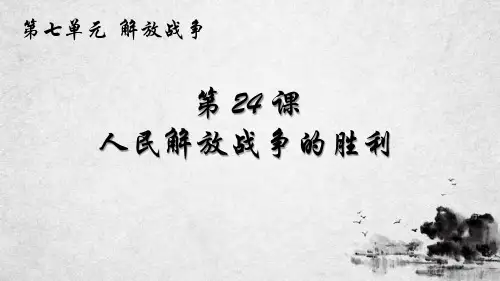 第七单元 解放战争
第 24 课
人民解放战争的胜利